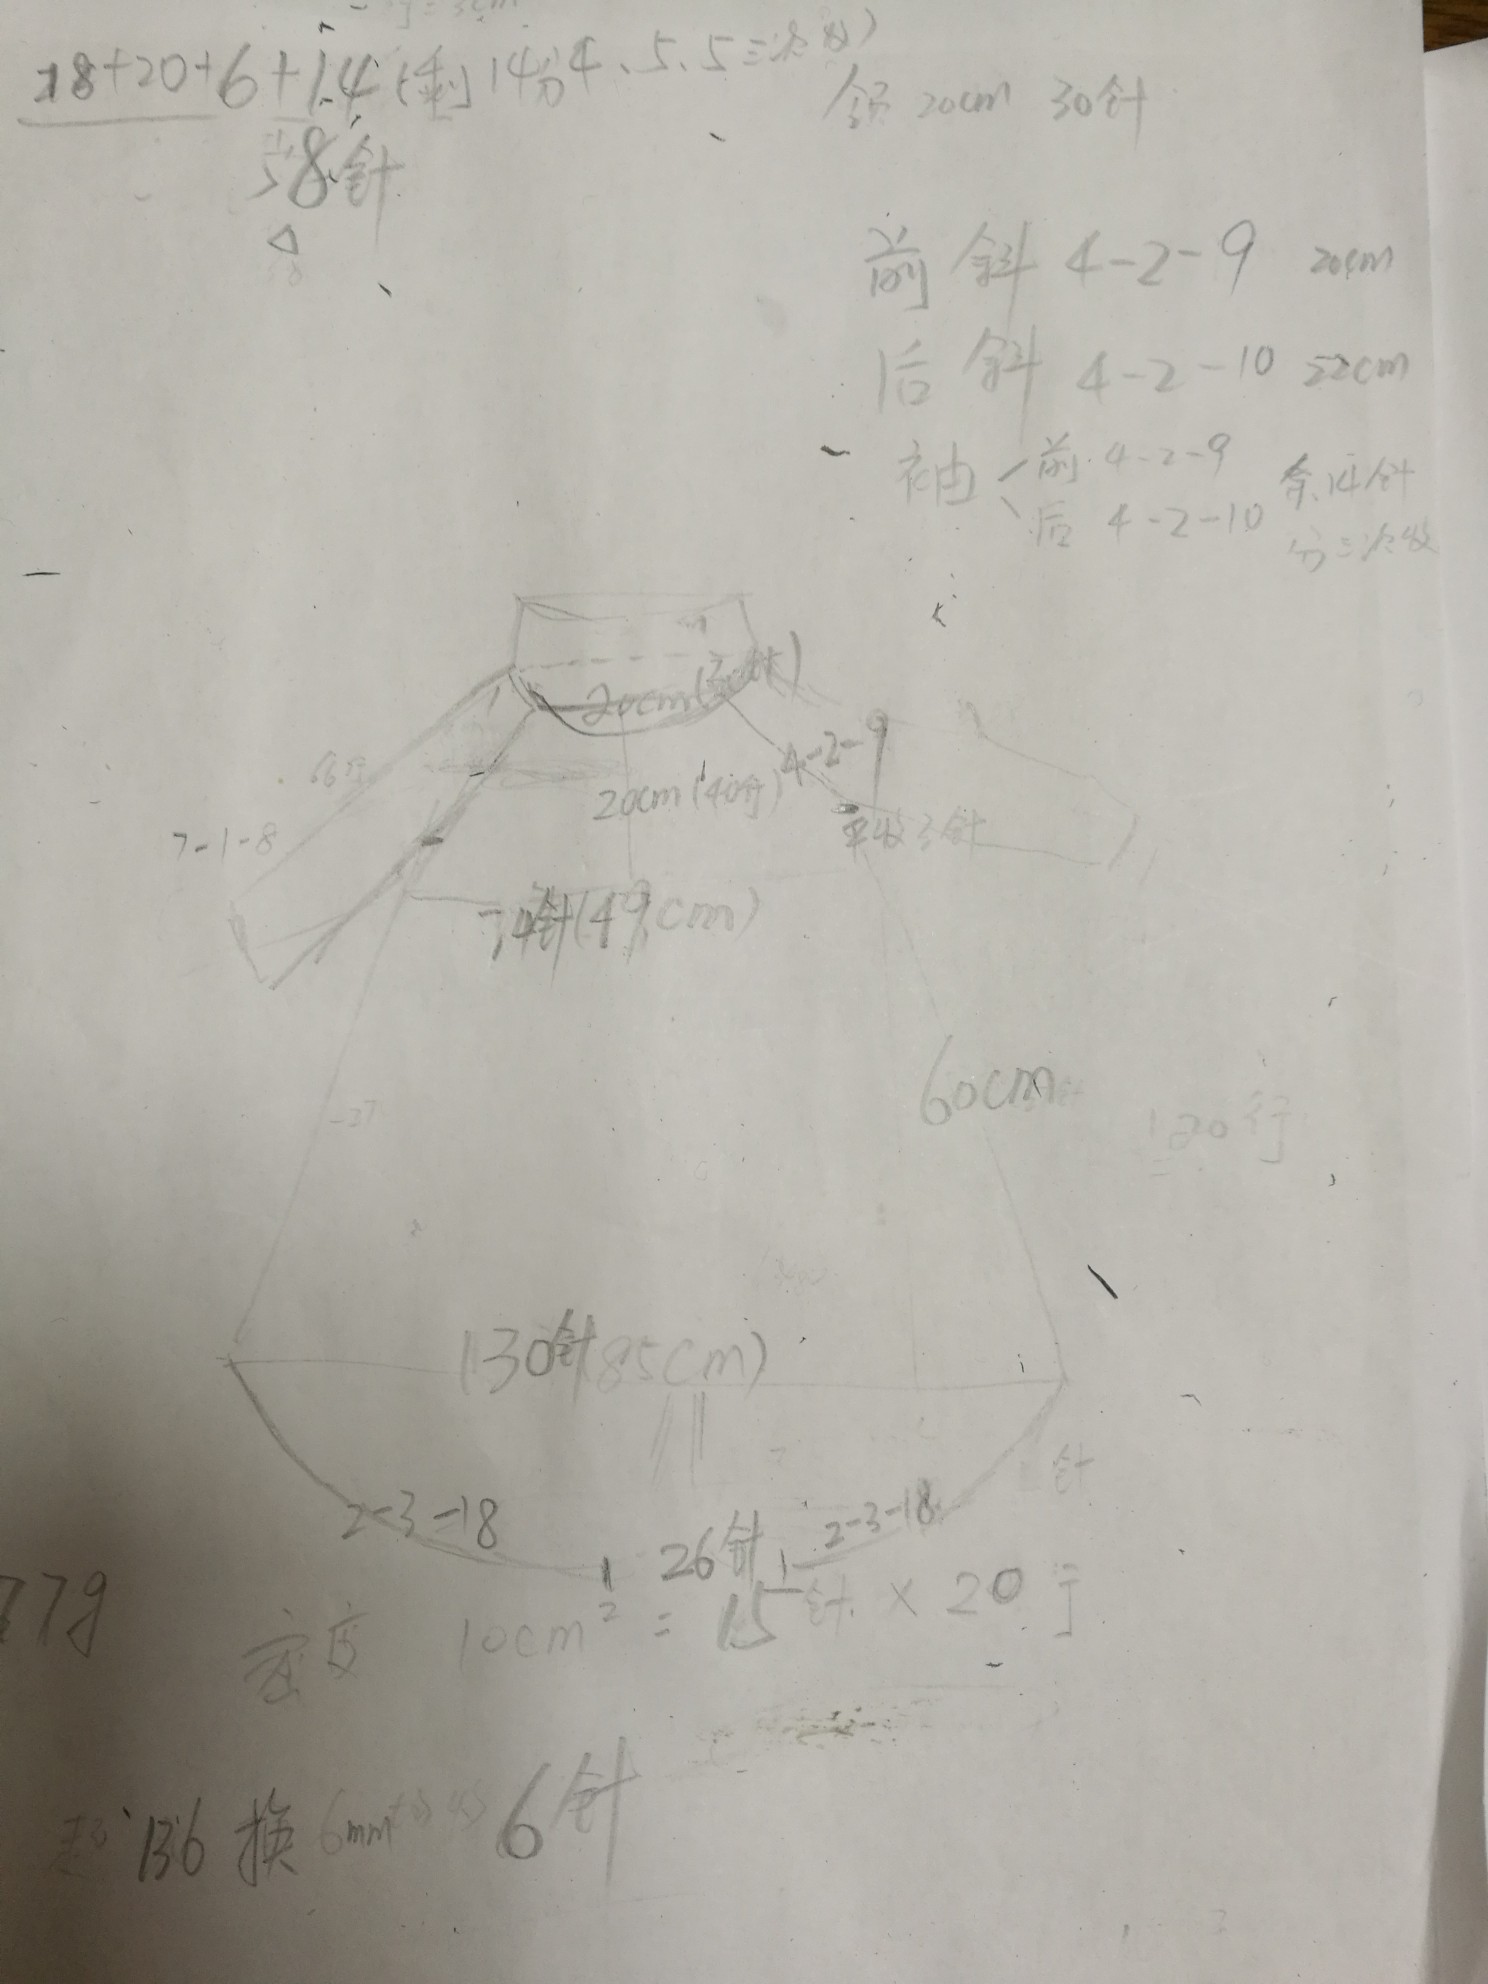 18+20+6+14(剩14分4、5、5三次收)
58针
领 20cm 30针
前斜 4-2-9 20cm
后斜 4-2-10 22cm
袖 前 4-2-9 余14针
后 4-2-10 分三次收
20cm(30针)
66行
4-2-9
20cm(40行)
7-1-8
平收3针
74针(49cm)
60cm
120行
130针(85cm)
针
2-3-18
26针
2-3-18
77g
密度 10cm² = 15针 × 20行
起136 换6mm 6针